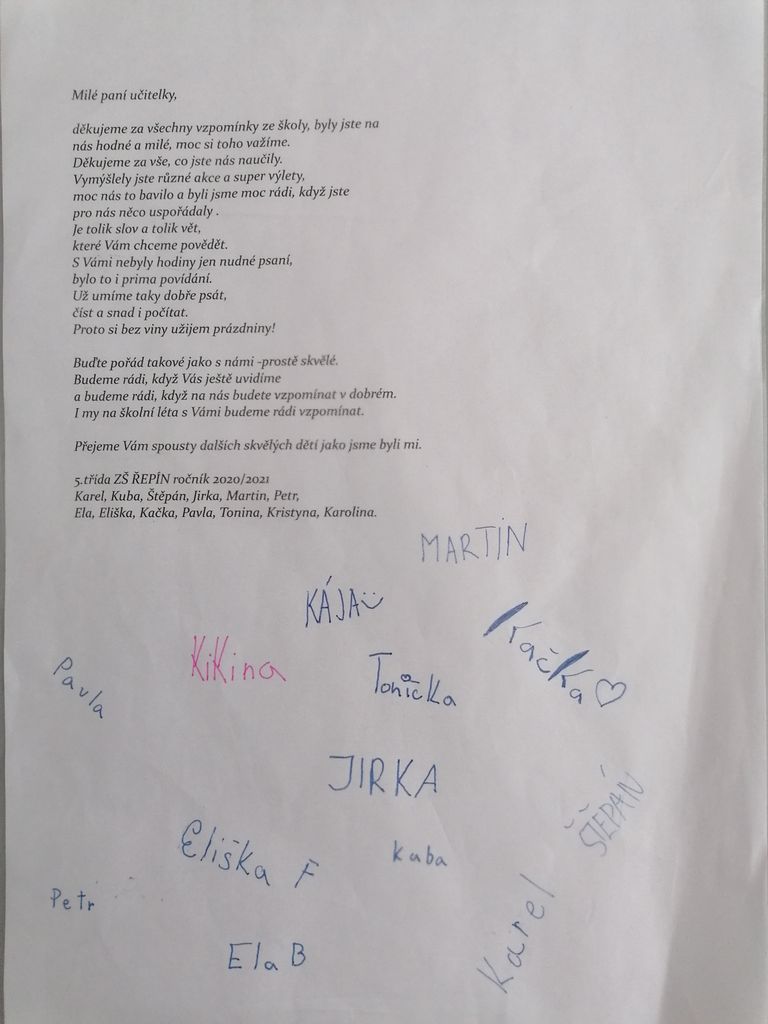 Milé paní učitelky,
děkujeme za všechny vzpomínky ze školy, byly jste na
nás hodné a milé, moc si toho vážíme.
Děkujeme za vše, co jste nás naučily.
Vymýšlely jste různé akce a super výlety,
moc nás to bavilo a byli jsme moc rádi, když jste
pro nás něco uspořádaly .
Je tolik slov a tolik vět,
které Vám chceme povědět.
S Vámi nebyly hodiny jen nudné psaní,
bylo to i prima povídání.
Už umíme taky dobře psát,
číst a snad i počítat.
Proto si bez viny užijem prázdniny!
Buďte pořád takové jako s námi -prostě skvělé.
Budeme rádi, když Vás ještě uvidíme
a budeme rádi, když na nás budete vzpomínat v dobrém.
I my na školní léta s Vámi budeme rádi vzpomínat.
Přejeme Vám spousty dalších skvělých dětí jako jsme byli mi.
5.třída ZŠ ŘEPÍN ročník 2020/2021
Karel, Kuba, Štěpán, Jirka, Martin, Petr,
Ela, Eliška, Kačka, Pavla, Tonina, Kristyna, Karolina.
MARTIN
KÁJA
Kačka
KiKina
Tonička
Pavla
JIRKA
ŠTĚPÁN
Eliška F
Kuba
Petr
Karel
Ela B